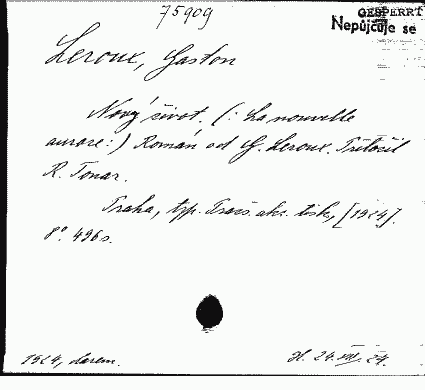 75909
GESPERRT
Nepůjčuje se
Leroux, Gaston
Nový život. (: La nouvelle
aurore:) Román od G. Leroux. Přeložil
R. Tonar.
Praha, typ. Praž. akc. tisk, [1924].
8° 496 s.
1924, darem.
24. VIII. 24.